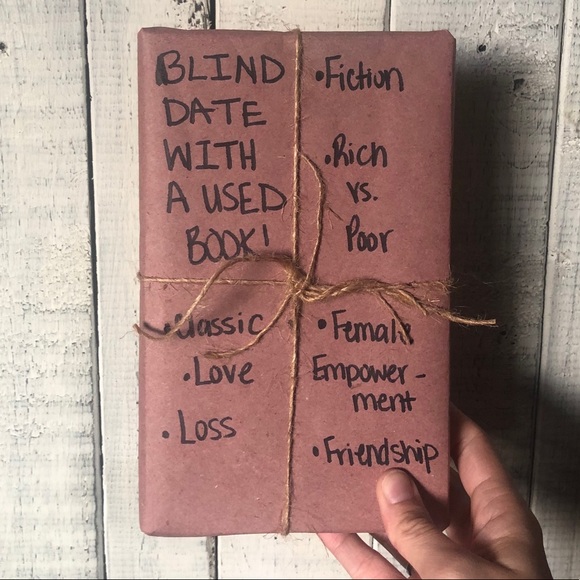 BLIND
DATE
WITH
A USED
BOOK!
• Classic
• Love
• Loss
• Fiction
• Rich
vs.
Poor
• Female
Empower-
ment
• Friendship